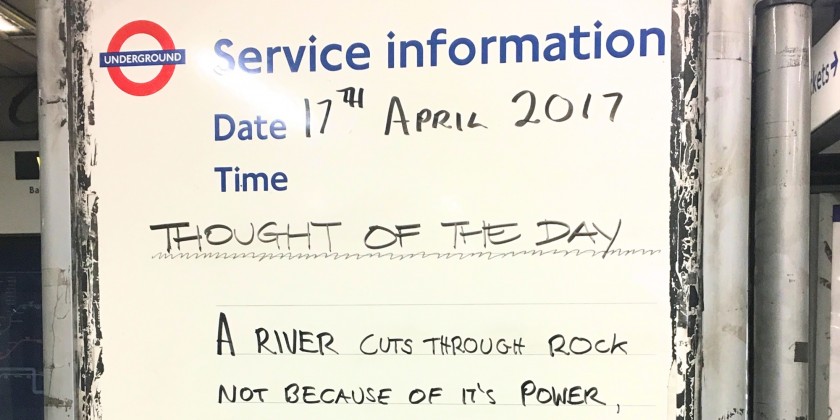 UNDERGROUND
Service information
Date 17TH APRIL 2017
Time
THOUGHT OF THE DAY
A RIVER CUTS THROUGH ROCK
NOT BECAUSE OF IT'S POWER,
kets→
Ba